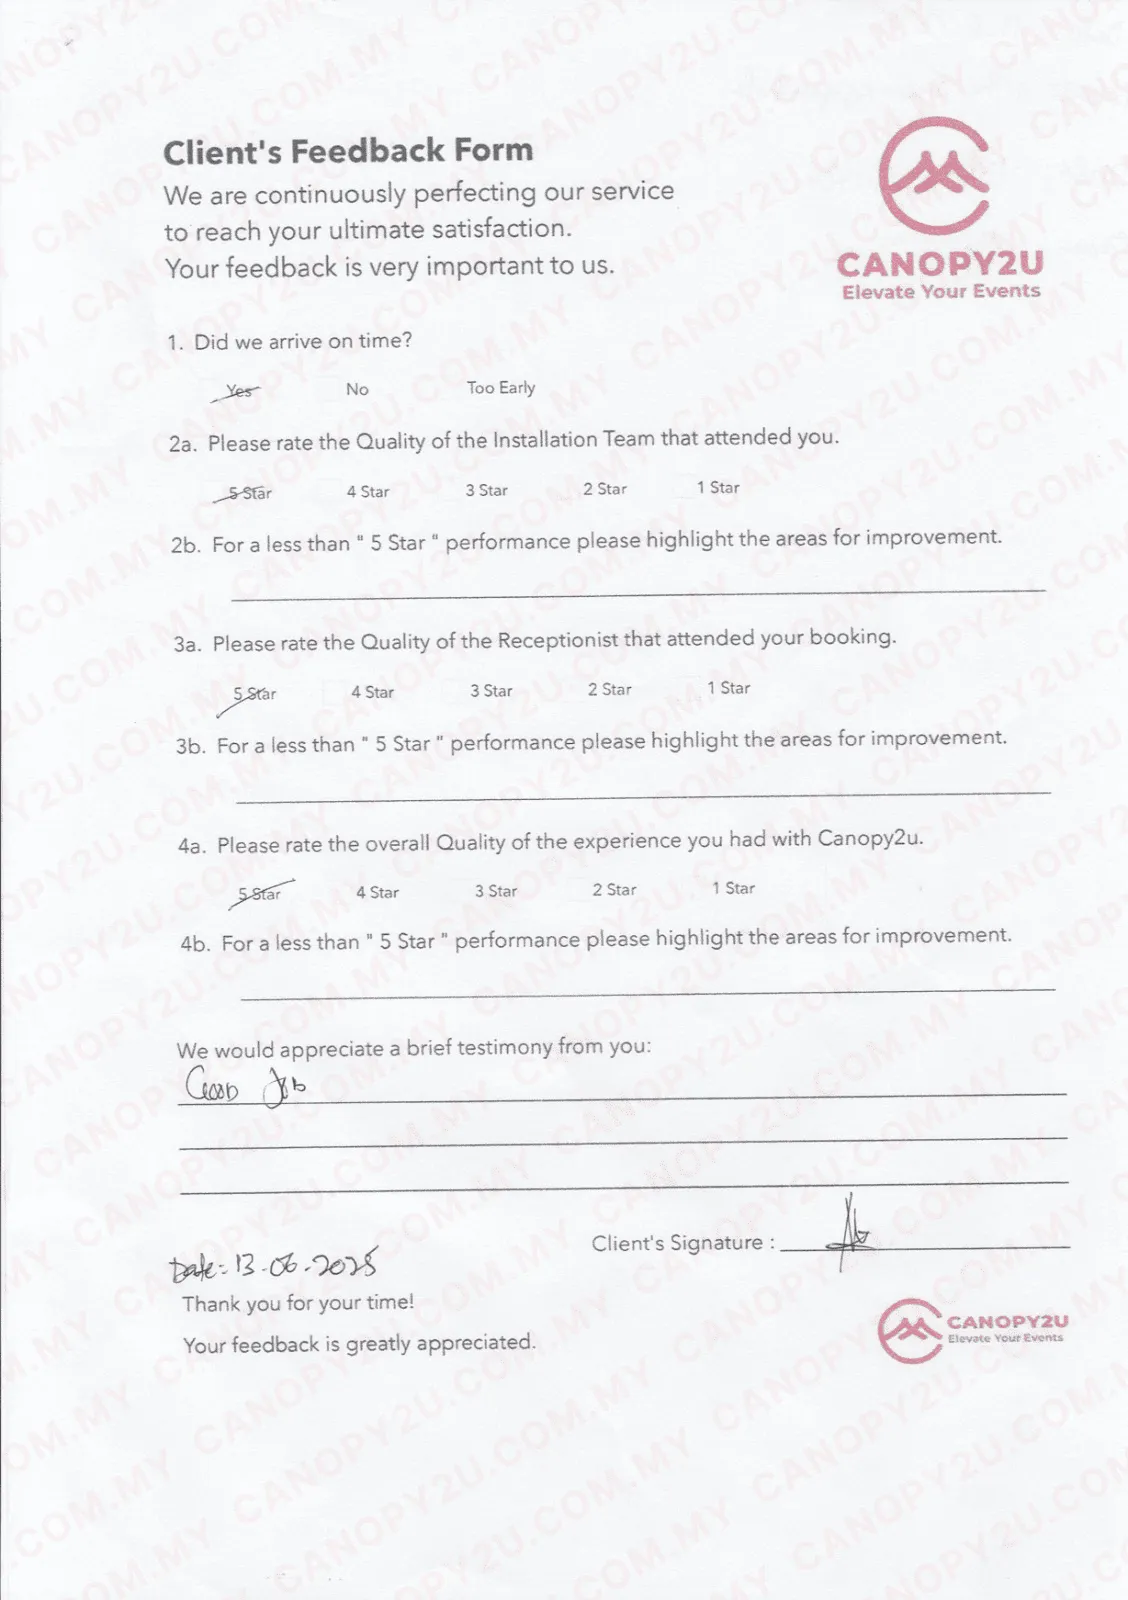 Client's Feedback Form
We are continuously perfecting our service
to reach your ultimate satisfaction.
Your feedback is very important to us.
CANOPY2U
Elevate Your Events
1. Did we arrive on time?
Yes No Too Early
2a. Please rate the Quality of the Installation Team that attended you.
5 Star 4 Star 3 Star 2 Star 1 Star
2b. For a less than " 5 Star " performance please highlight the areas for improvement.
3a. Please rate the Quality of the Receptionist that attended your booking.
5 Star 4 Star 3 Star 2 Star 1 Star
3b. For a less than " 5 Star " performance please highlight the areas for improvement.
4a. Please rate the overall Quality of the experience you had with Canopy2u.
5 Star 4 Star 3 Star 2 Star 1 Star
4b. For a less than " 5 Star " performance please highlight the areas for improvement.
We would appreciate a brief testimony from you:
GOOD Job
Client's Signature :
Date:- 13-06-2025
Thank you for your time!
Your feedback is greatly appreciated.
CANOPY2U
Elevate Your Events
CANOPY2U.COM.MY